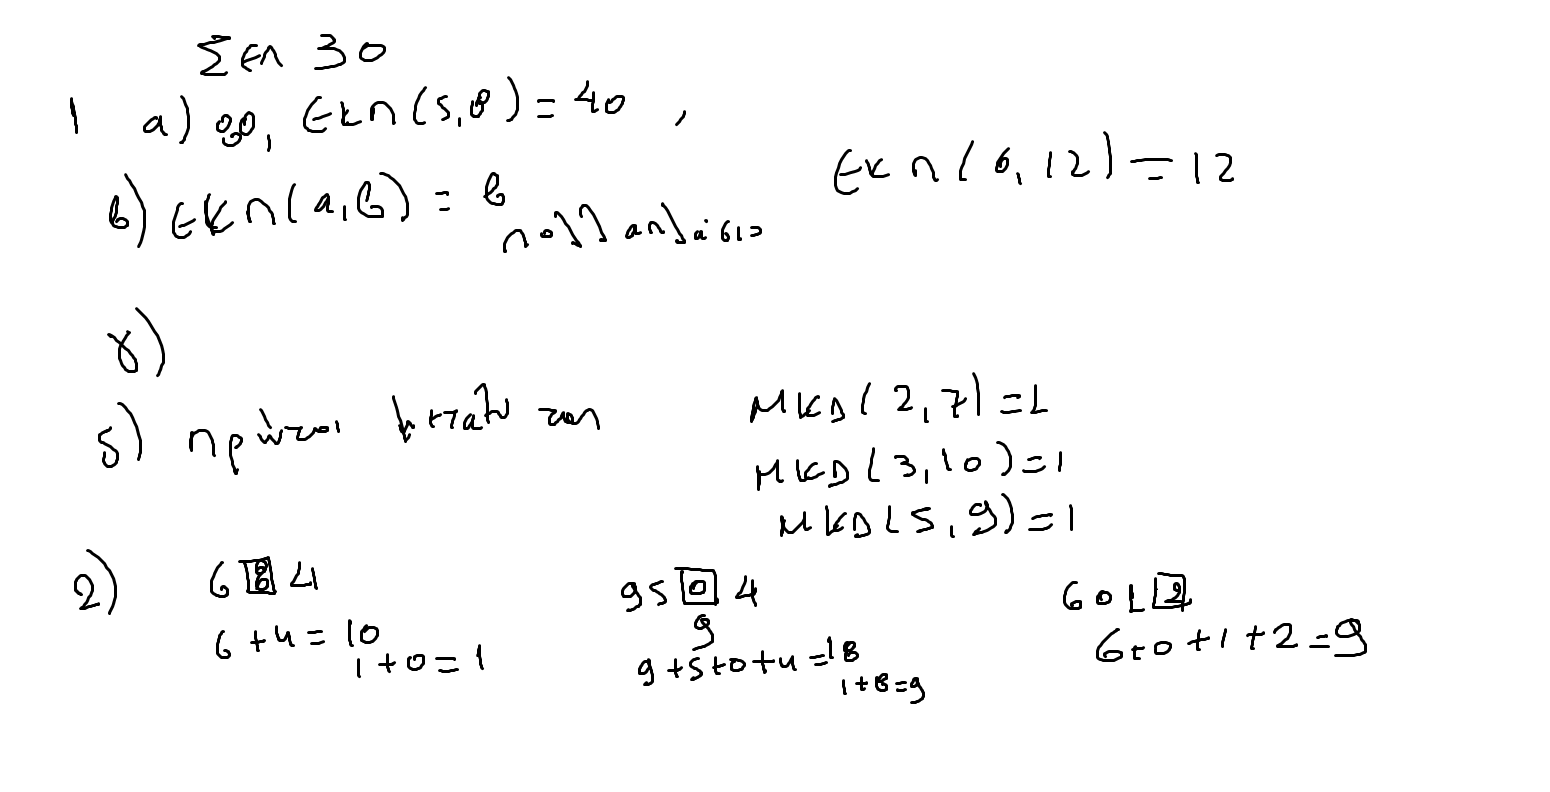 Σελ 30
1 α) 90, ΕΚΠ(5,8)=40 , ΕΚΠ(6,12)=12
β) ΕΚΠ(α,β) = β
πολλαπλάσιο
γ)
δ) πρώτοι μεταξύ τους
ΜΚΔ(2,7)=1
ΜΚΔ(3,10)=1
ΜΚΔ(5,9)=1
2) 6 8 4 95 0 4 601 2
6+4=10 9 6+0+1+2=9
1+0=1 9+5+0+4=18
1+8=9